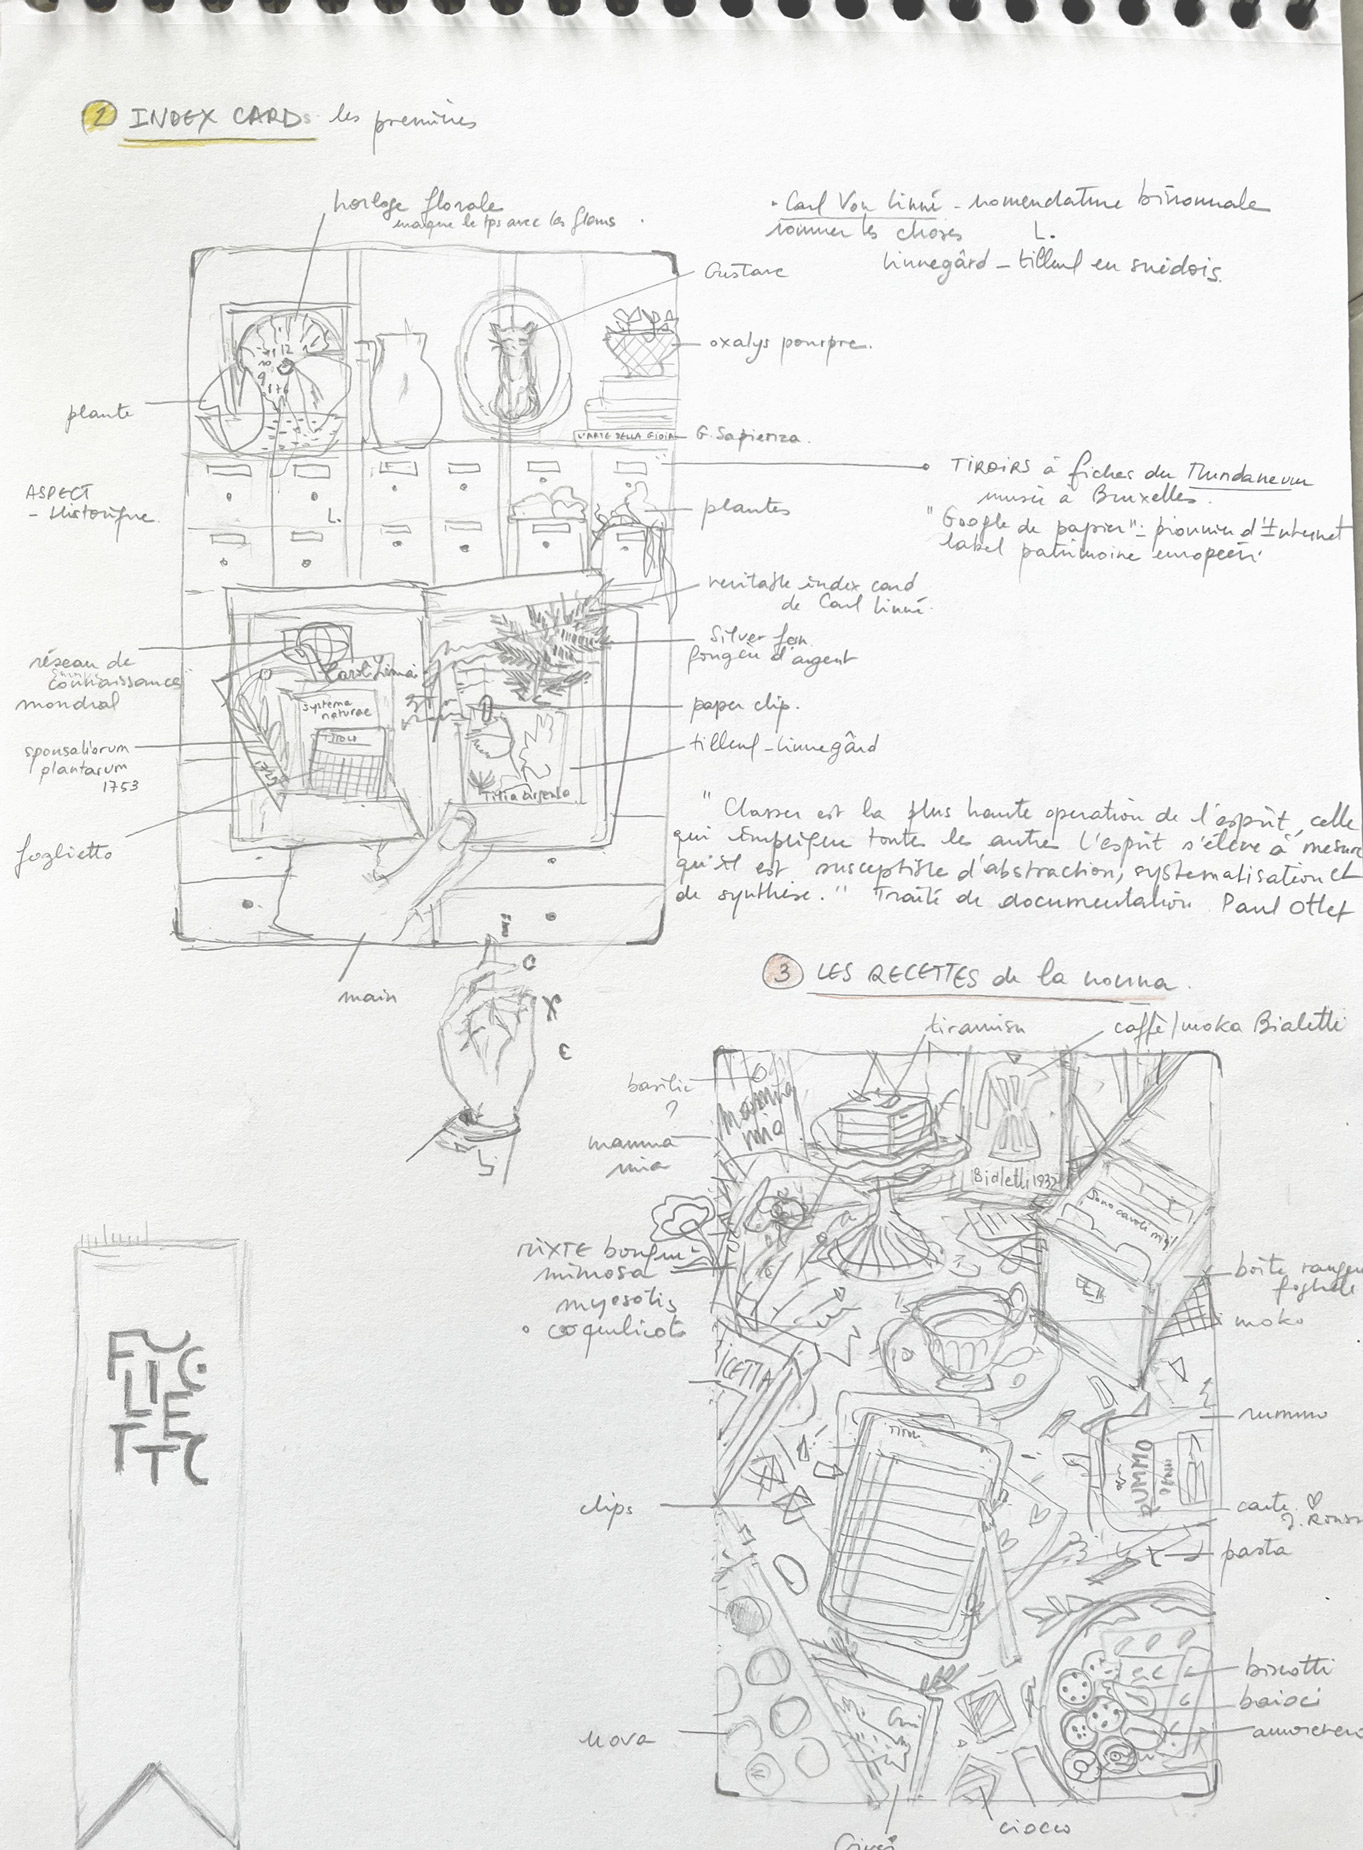 2 INDEX CARDs les premières
horloge florale
marque le tps avec les fleurs.
• Carl Von Linné - nomenclature binominale
nommer les choses L.
Linnegård - tilleul en suédois.
Gustave
oxalys pourpre.
plante
12
L'ARTE DELLA GIOIA
G. Sapienza.
ASPECT
- Historique.
L.
TIROIRS à fiches du Mundaneum
musée à Bruxelles.
"Google de papier": pionnier d'Internet
label patrimoine européen
plantes
véritable index card
de Carl Linné.
Silver fern
fougère d'argent
réseau de
connaissance
mondial
Systema
naturae
TITOLO
paper clip.
tilleul - linnegård
sponsaliorum
plantarum
1753
foglietto
"Classer est la plus haute operation de l'esprit, celle
qui implique toutes les autres l'esprit s'élève à mesure
qu'il est susceptible d'abstraction, systématisation et
de synthèse." Traité de documentation. Paul Otlet
main
3 LES RECETTES de la nonna.
tiramisu
caffè/moka Bialetti
basilic
?
mamma
mia
mamma
mia
Bialetti 1932
Sono cavoli miei!
MIXTE bouquet
mimosa
myosotis
coquelicots
boite
moka
ICETTA
FOG
LIE
TTO
rummo
TITOLO
RUMMO
clips
carte
pasta
biscotti
baioci
uova
ciocco